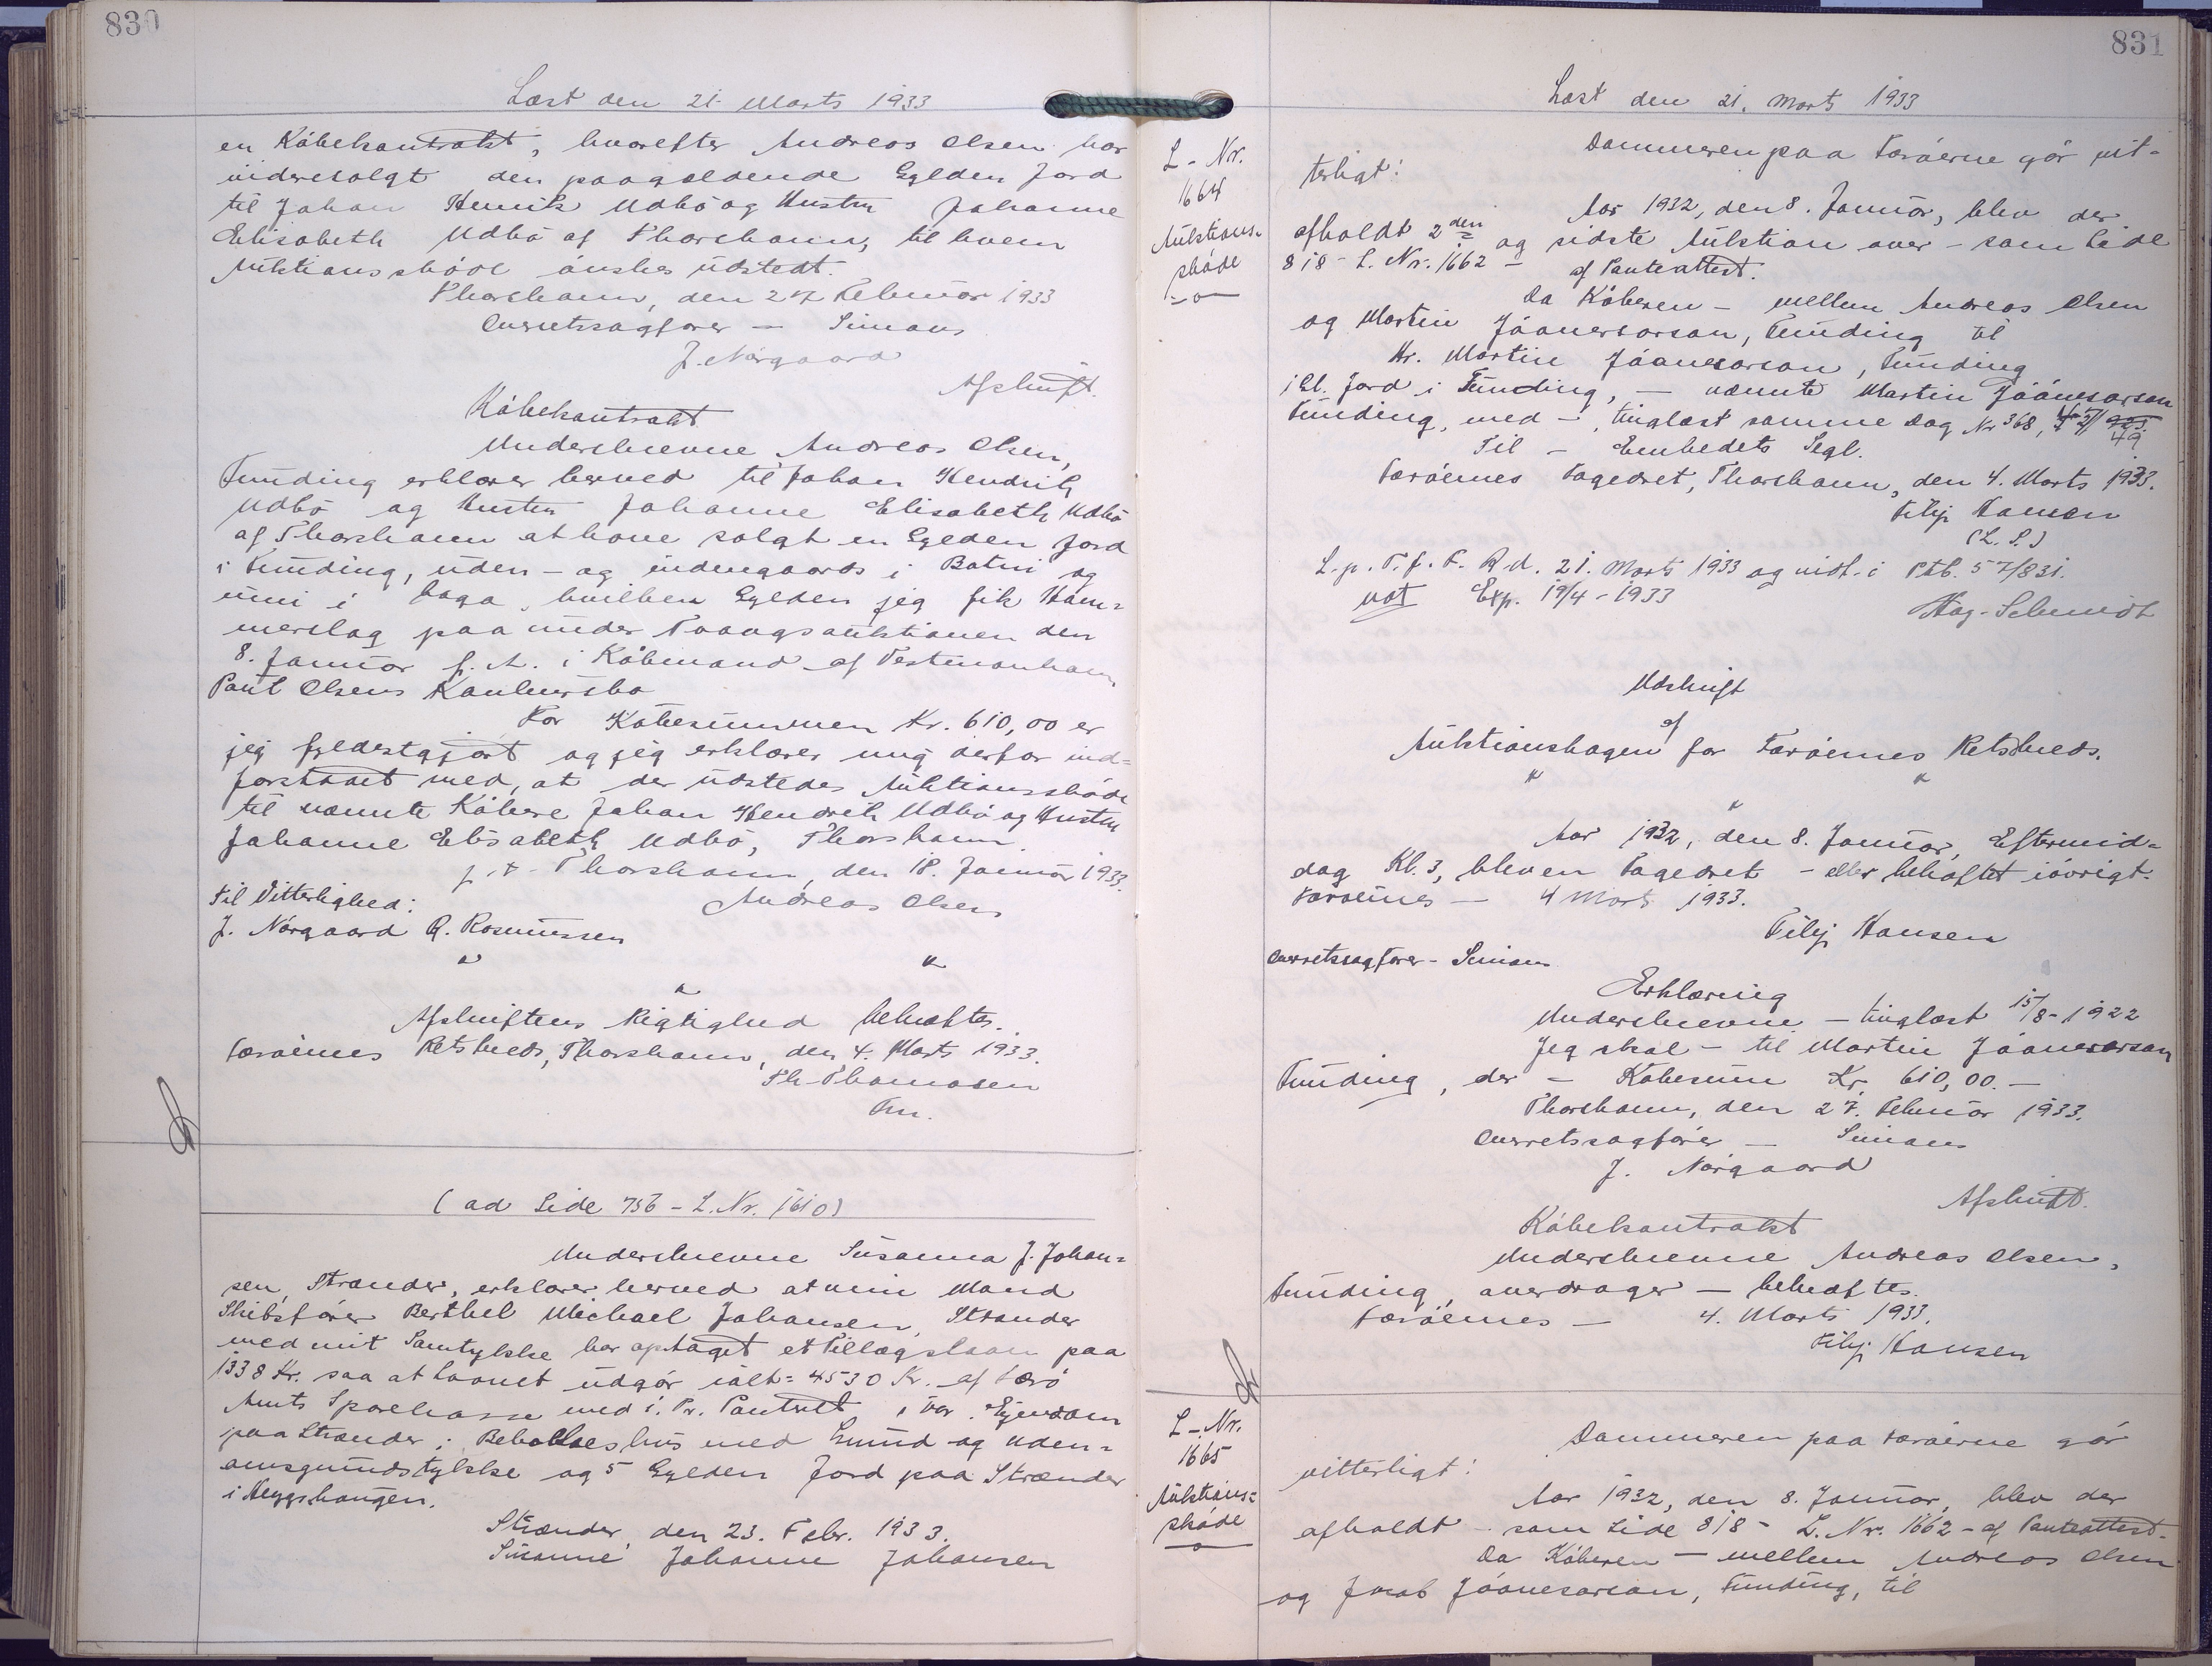 830
Læst den 21. Marts 1933
en Köbekontrakt, hvorefter Andreas Olsen har
videresolgt den paagældende Gylden Jord
til Johan Henrik Udbö og Hustru Johanne
Elisabeth Udbö af Thorshavn, til hvem
Auktionsskøde önskes udstedt.
Thorshavn, den 27 Februar 1933
Overretssagfører — Simons
J. Nörgaard
Afskrift.
Köbekontrakt
Underskrevne Andreas Olsen,
Funding erklærer herved til Johan Hendrik
Udbö og Hustru Johanne Elisabeth Udbö
af Thorshavn at have solgt en Gylden Jord
i Funding, uden- og indengaards i Botni og
inni i Haga, hvilken Gylden jeg fik Ham=
merslag paa under Tvangsauktionen den
8. Januar f. A. i Købmand af Vestmanhavn
Poul Olsens Konkursbo
For Købesummen Kr. 610,00 er
jeg fyldestgjort og jeg erklærer mig derfor ind=
forstaaet med, at der udstedes Auktionsskøde
til nævnte Købere Johan Hendrik Udbö og Hustru
Johanne Elisabeth Udbö, Thorshavn.
p.t. Thorshavn, den 18. Januar 1933.
Til Vitterlighed: Andreas Olsen
J. Nörgaard R. Rasmussen
Afskriftens Rigtighed bekræftes.
Færöernes Retskreds, Thorshavn, den 4. Marts 1933.
Th. Thomasen
Fm.
(ad Side 756 - L. Nr. 1610)
Underskrevne Susanna J. Johan=
sen, Strænder, erklærer herved at min Mand
Skibsfører Berthel Michael Johansen, Strænder
med mit Samtykke har optaget et Tillægslaan paa
1338 Kr. saa at Laanet udgör ialt = 4530 Kr. af Færö
Amts Sparekasse med 1. Pr. Panteret i vor Ejendom
paa Strænder: Beboelseshus med Grund og Uden=
omsgrundstykke og 5 Gylden Jord paa Strænder
i Heyggshaugen.
Strænder, den 23. Febr. 1933.
Susanne Johanne Johansen
831
Læst den 21. Marts 1933
L - Nr.
1664
Auktions=
skøde
Dommeren paa Færöerne gör vit=
terligt:
Aar 1932, den 8. Januar, blev der
afholdt 2den og sidste Auktion over - som Side
818 - L. Nr. 1662 - af Panteattest.
Da Köberen - mellem Andreas Olsen
og Martin Jóanesarson, Funding til
Hr. Martin Jóanesarson, Funding
1 Gl. Jord i Funding, — nævnte Martin Jóánesarson
Funding, med - , tinglæst samme Dag Nr 368,
Til - Embedets Segl.
Færöernes Fogedret, Thorshavn, den 4. Marts 1933.
Filip Hansen
(L. S.)
L. p. T. f. F. R. d. 21. Marts 1933 og indt. i Ptb. 57/831.
not Exp. 19/4 - 1933
Hag-Schmidt
Udskrift
af
Auktionsbogen for Færöernes Retskreds.
Aar 1932, den 8. Januar, Eftermid=
dag Kl. 3, blev en Fogedret - eller behæftet iövrigt.
Færöernes — 4 Marts 1933.
Filip Hansen
Overretssagfører - Simons
Erklæring
Underskrevne - tinglæst 15/8 - 1922
Jeg skal - til Martin Jóanesarson
Funding, der - Købesum Kr. 610,00.—
Thorshavn, den 27. Februar 1933.
Overretssagfører — Simons
J. Nörgaard
Afskrift.
Köbekontrakt
Underskrevne Andreas Olsen,
Funding, overdrager — bekræftes.
Færöernes — 4. Marts 1933.
Filip Hansen
L - Nr.
1665
Auktions=
skøde
Dommeren paa Færöerne gör
vitterligt:
Aar 1932, den 8. Januar, blev der
afholdt - som Side 818 - L. Nr. 1662 - af Panteattest.
Da Köberen — mellem Andreas Olsen
og Jacob Jóanesarson, Funding, til